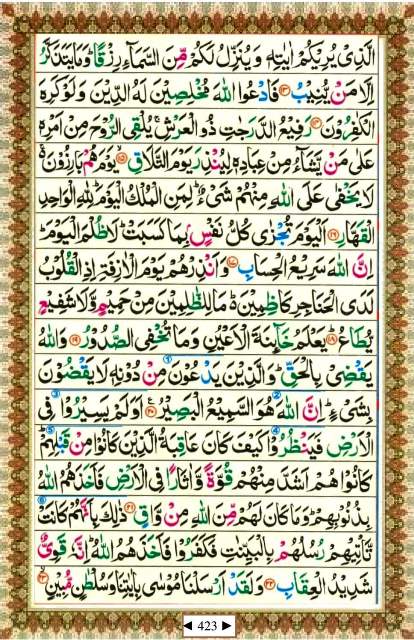 الَّذِىۡ يُرِيۡكُمۡ اٰيٰتِهٖ وَيُنَزِّلُ لَكُمۡ مِّنَ السَّمَآءِ رِزۡقًا ؕ وَمَا يَتَذَكَّرُ
اِلَّا مَنۡ يُّنِيۡبُ ﴿۱۳﴾ فَادۡعُوا اللّٰهَ مُخۡلِصِيۡنَ لَهُ الدِّيۡنَ وَلَوۡ كَرِهَ
الۡكٰفِرُوۡنَ ﴿۱۴﴾ رَفِيۡعُ الدَّرَجٰتِ ذُو الۡعَرۡشِ ۚ يُلۡقِى الرُّوۡحَ مِنۡ اَمۡرِهٖ
عَلٰى مَنۡ يَّشَآءُ مِنۡ عِبَادِهٖ لِيُنۡذِرَ يَوۡمَ التَّلَاقِ ﴿۱۵﴾ يَوۡمَ هُمۡ بَارِزُوۡنَ ۚ
لَا يَخۡفٰى عَلَى اللّٰهِ مِنۡهُمۡ شَىۡءٌ ؕ لِمَنِ الۡمُلۡكُ الۡيَوۡمَ ؕ لِلّٰهِ الۡوَاحِدِ
الۡقَهَّارِ ﴿۱۶﴾ اَلۡيَوۡمَ تُجۡزٰى كُلُّ نَفۡسٍۢ بِمَا كَسَبَتۡ ؕ لَا ظُلۡمَ الۡيَوۡمَ ؕ
اِنَّ اللّٰهَ سَرِيۡعُ الۡحِسَابِ ﴿۱۷﴾ وَاَنۡذِرۡهُمۡ يَوۡمَ الۡاٰزِفَةِ اِذِ الۡقُلُوۡبُ
لَدَى الۡحَنَاجِرِ كٰظِمِيۡنَ ؕ مَا لِلظّٰلِمِيۡنَ مِنۡ حَمِيۡمٍ وَّلَا شَفِيۡعٍ
يُّطَاعُ ﴿۱۸﴾ يَعۡلَمُ خَآئِنَةَ الۡاَعۡيُنِ وَمَا تُخۡفِى الصُّدُوۡرُ ﴿۱۹﴾ وَاللّٰهُ
يَقۡضِىۡ بِالۡحَقِّ ؕ وَالَّذِيۡنَ يَدۡعُوۡنَ مِنۡ دُوۡنِهٖ لَا يَقۡضُوۡنَ
بِشَىۡءٍ ؕ اِنَّ اللّٰهَ هُوَ السَّمِيۡعُ الۡبَصِيۡرُ ﴿۲۰﴾ اَوَلَمۡ يَسِيۡرُوۡا فِى
الۡاَرۡضِ فَيَنۡظُرُوۡا كَيۡفَ كَانَ عَاقِبَةُ الَّذِيۡنَ كَانُوۡا مِنۡ قَبۡلِهِمۡ ؕ
كَانُوۡا هُمۡ اَشَدَّ مِنۡهُمۡ قُوَّةً وَّاٰثَارًا فِى الۡاَرۡضِ فَاَخَذَهُمُ اللّٰهُ
بِذُنُوۡبِهِمۡ ؕ وَمَا كَانَ لَهُمۡ مِّنَ اللّٰهِ مِنۡ وَّاقٍ ﴿۲۱﴾ ذٰلِكَ بِاَنَّهُمۡ كَانَتۡ
تَّاۡتِيۡهِمۡ رُسُلُهُمۡ بِالۡبَيِّنٰتِ فَكَفَرُوۡا فَاَخَذَهُمُ اللّٰهُ ؕ اِنَّهٗ قَوِىٌّ
شَدِيۡدُ الۡعِقَابِ ﴿۲۲﴾ وَلَقَدۡ اَرۡسَلۡنَا مُوۡسٰى بِاٰيٰتِنَا وَسُلۡطٰنٍ مُّبِيۡنٍ ﴿۲۳﴾
◄ 423 ►